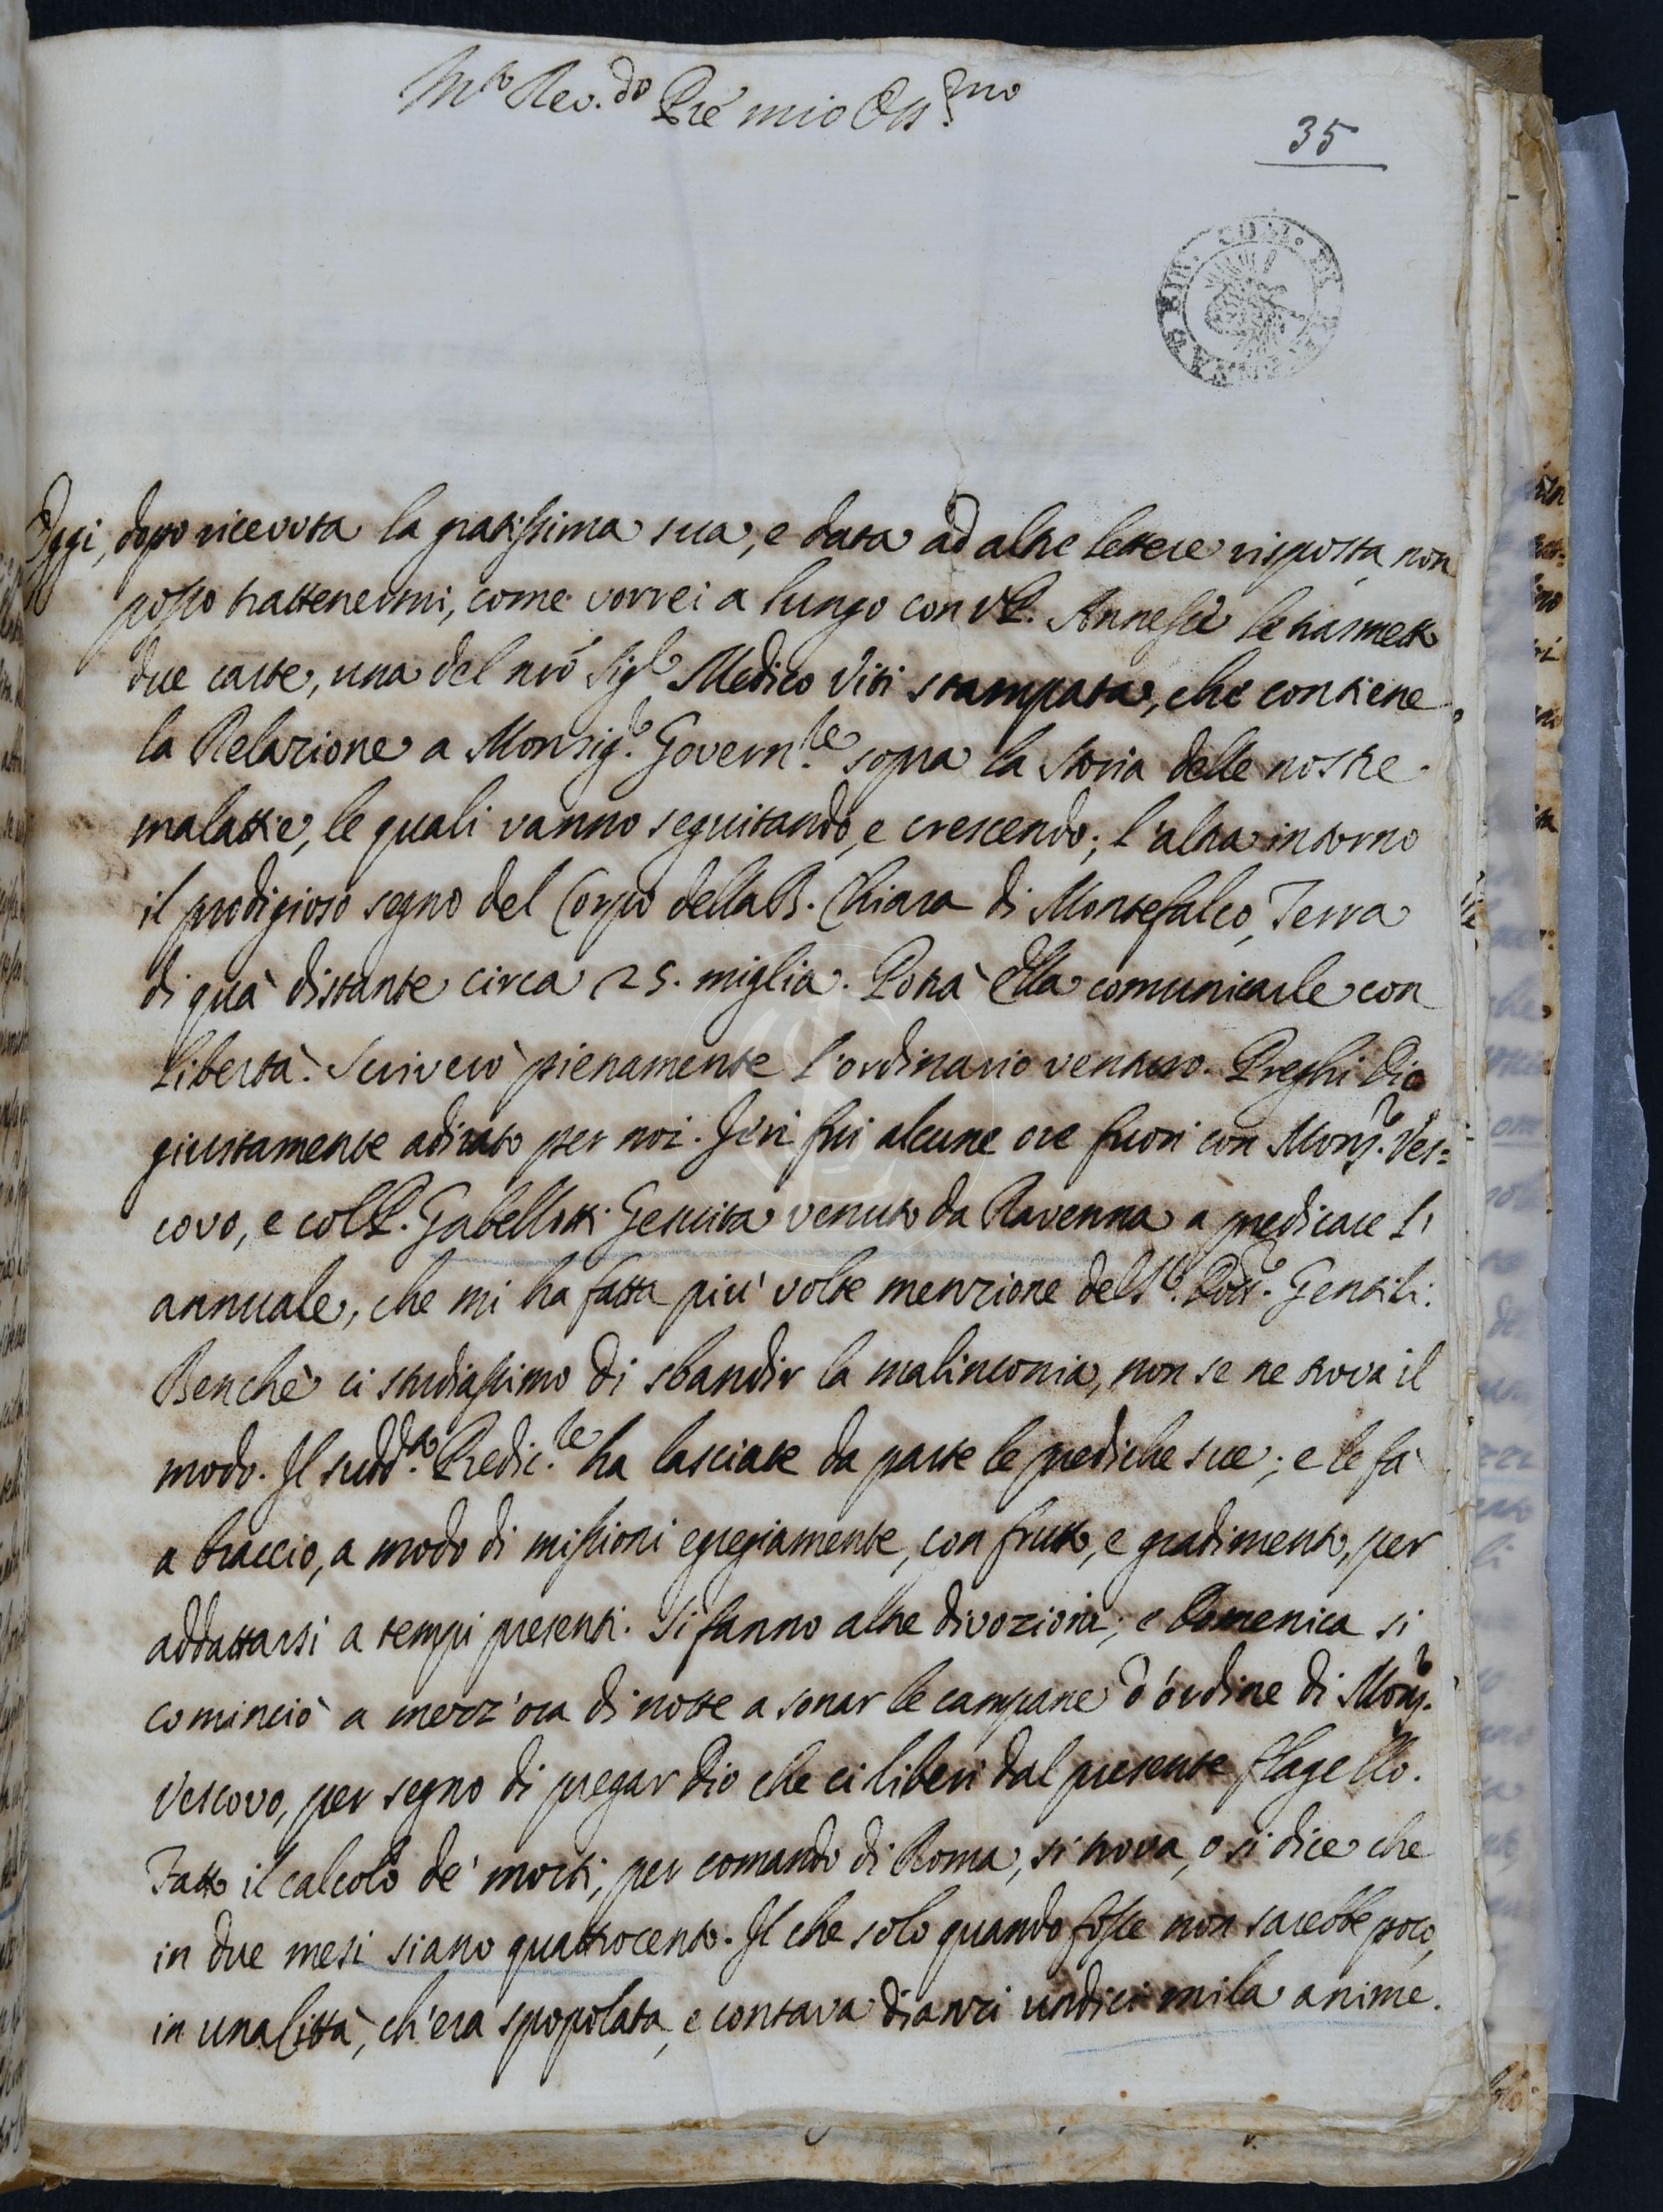 Mto Rev.do Pre mio Ossmo
35
Oggi, dopo ricevuta la gratissima sua, e data ad altre lettere risposta non
posso trattenermi, come vorrei a lungo con VP. Annesse le trasmetto
due carte, una del nro Sigre Medico Viti stampata, che contiene
la Relazione a Monsig.re Govern.re sopra la Storia delle nostre
malattie, le quali vanno seguitando, e crescendo; l'altra intorno
il prodigioso segno del Corpo della B. Chiara di Montefalco, Terra
di quà distante circa 25. miglia. Potrà Ella comunicarle con
libertà. Scriverò pienamente l'ordinario venturo. Preghi Dio
giustamente adirato per noi. Jeri fui alcune ore fuori con Mons.r Ves=
covo, e col P. Gabellotti Gesuita venuto da Ravenna a predicare l'
annuale, che mi ha fatta più volte menzione del Sr. Dott.re Gentili.
Benchè ci studiassimo di sbandir la malinconia, non se ne trova il
modo. Il sudd.to Predic.re ha lasciate da parte le prediche sue; e le fà
a braccio, a modo di missioni egregiamente, con frutto, e gradimento, per
addattarsi a tempi presenti. Si fanno altre divozioni; e Domenica si
cominciò a mezz'ora di notte a sonar le campane d'órdine di Mons.r
Vescovo, per segno di pregar Dio che ci liberi dal presente flagello.
Fatto il calcolo de' morti, per comando di Roma, si trova, o si dice che
in due mesi siano quattrocento. Il che solo quando fosse non sarebbe poco,
in una Città, ch'era spopolata, e contava dianzi undici mila anime.